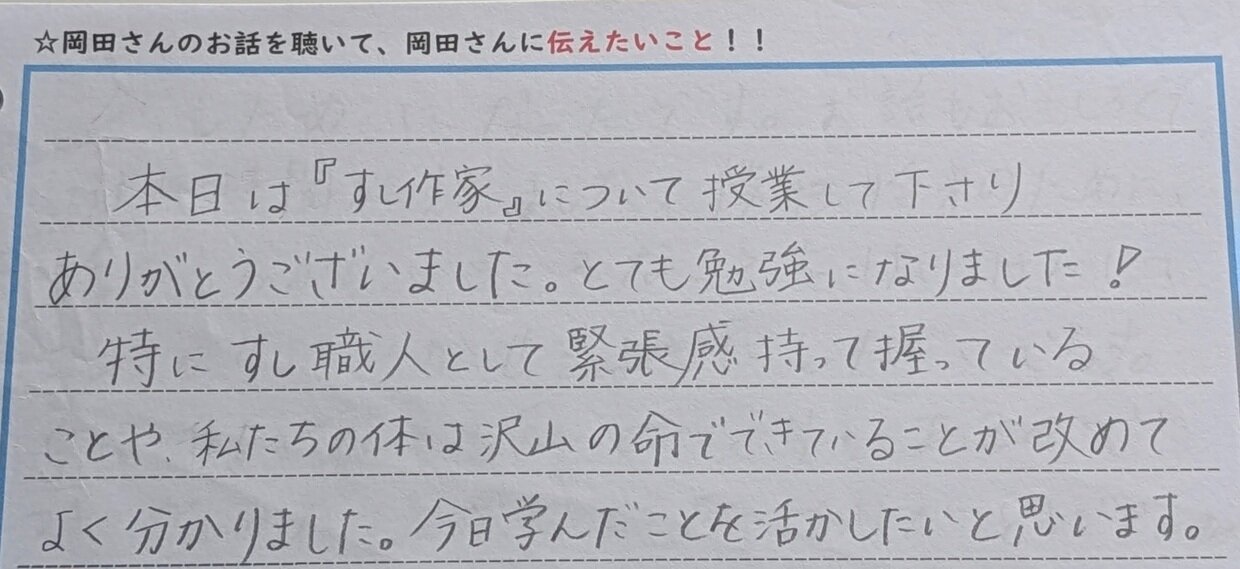 ☆岡田さんのお話を聴いて、岡田さんに伝えたいこと！！
本日は『すし作家』について授業して下さり
ありがとうございました。とても勉強になりました！
特にすし職人として緊張感持って握っている
ことや、私たちの体は沢山の命でできていることが改めて
よく分かりました。今日学んだことを活かしたいと思います。